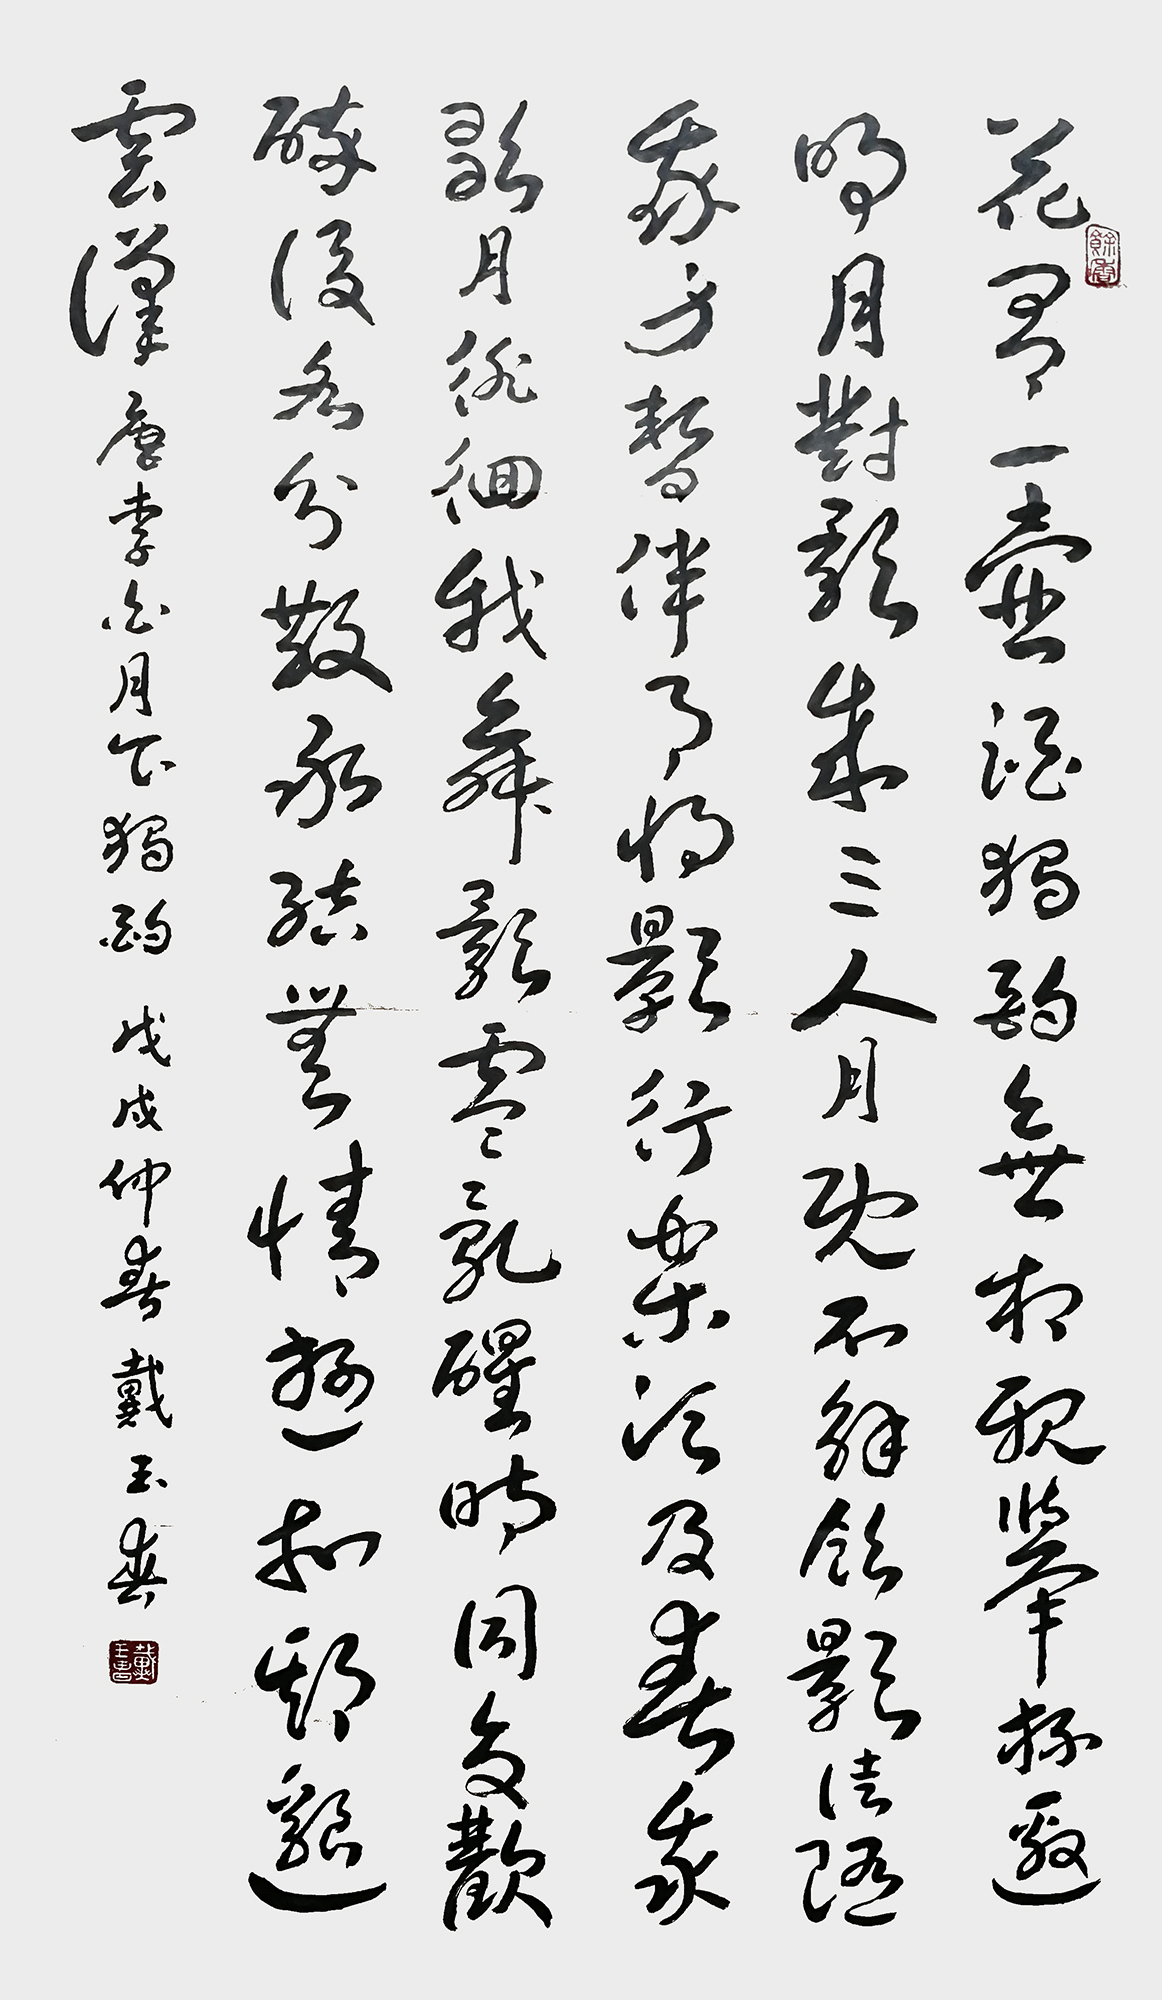 花間一壺酒獨酌無相親舉杯邀
明月對影成三人月既不解飲影徒隨
我身暫伴月將影行樂須及春我
歌月徘徊我舞影零亂醒時同交歡
醉後各分散永結無情遊相期邈
雲漢 唐李白月下獨酌 戊戌仲春 戴玉